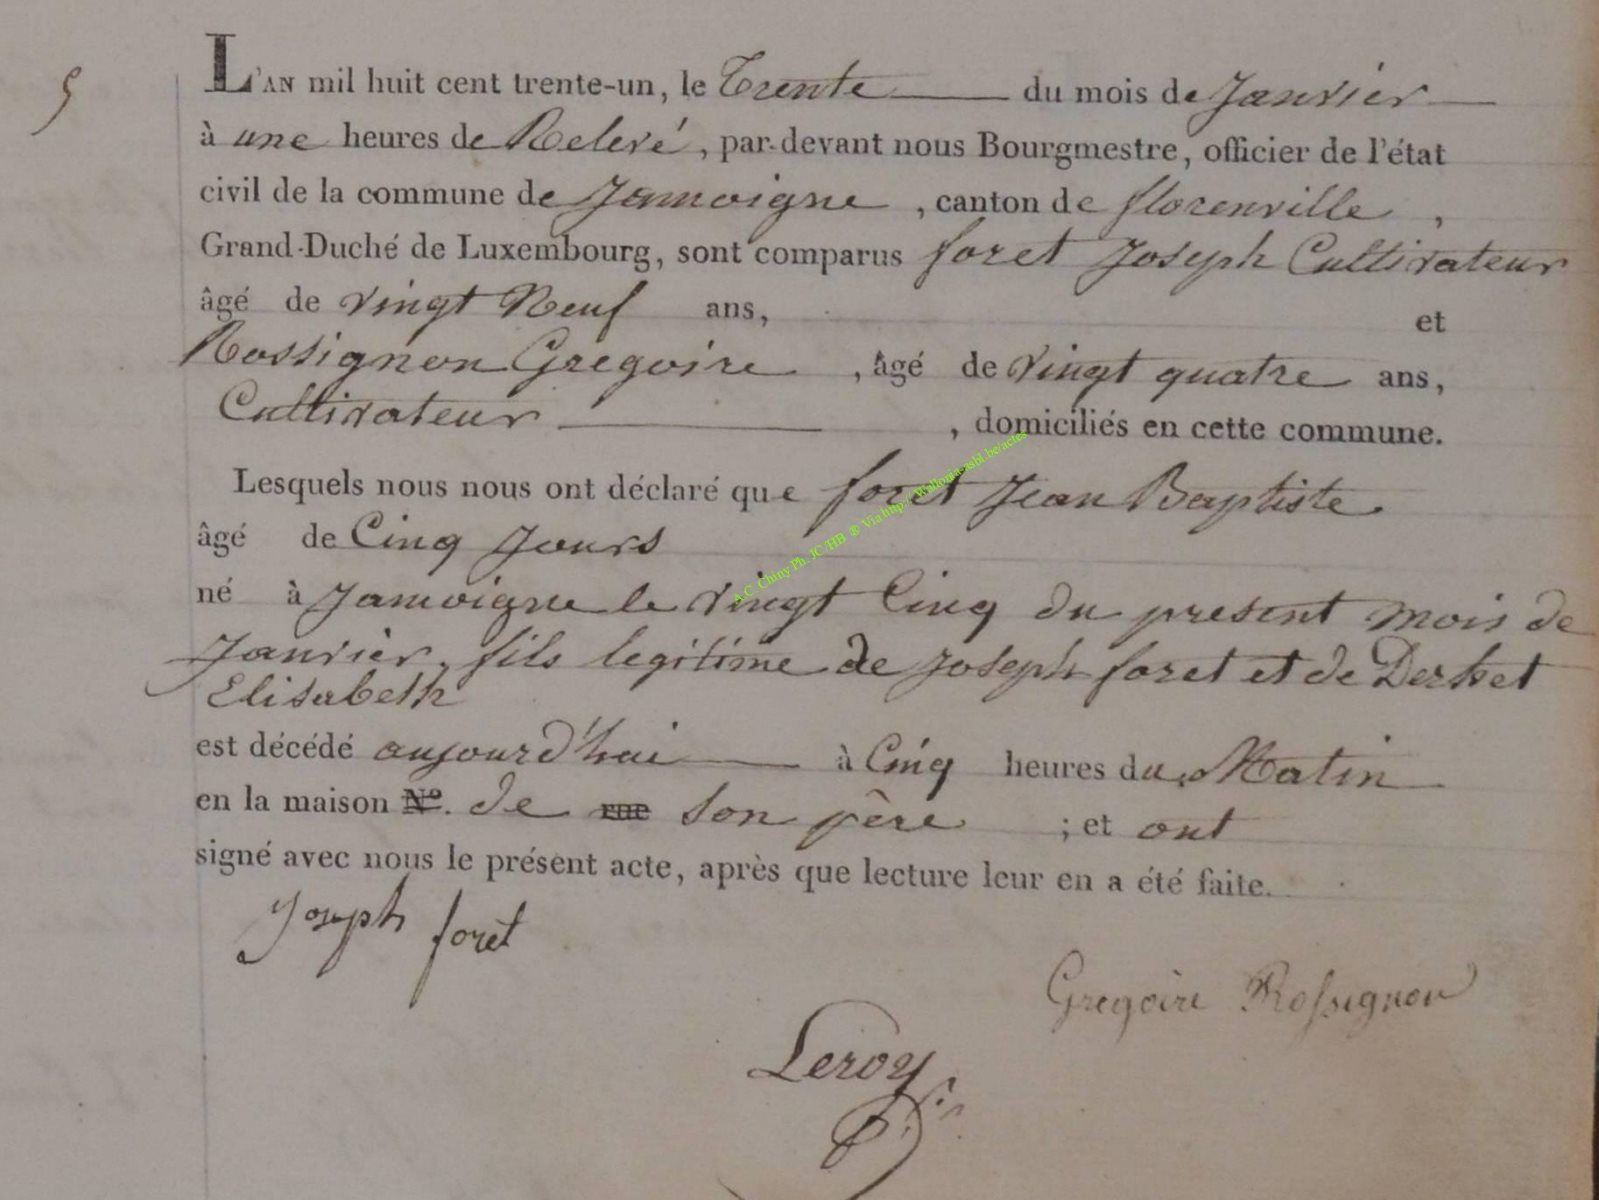 5
L'AN mil huit cent trente-un, le Trente du mois de Janvier
à une heures de Relevé, par-devant nous Bourgmestre, officier de l'état
civil de la commune de Jamoigne, canton de florenville,
Grand-Duché de Luxembourg, sont comparus foret Joseph Cultivateur
âgé de vingt Neuf ans, et
Rossignon Gregoire, âgé de vingt quatre ans,
Cultivateur, domiciliés en cette commune.
Lesquels nous nous ont déclaré que foret Jean Baptiste
âgé de Cinq Jours
né à Jamoigne le vingt Cinq du present mois de
Janvier, fils legitime de Joseph foret et de
Elisabeth
est décédé aujourd'hui à Cinq heures du Matin
en la maison N°. de rue son père ; et ont
signé avec nous le présent acte, après que lecture leur en a été faite.
Joseph forêt
Gregoire Rossignon
Leroy
A.C. Chiny Ph. JC/HB ® Via http://Wallonia-asbl.be/actes